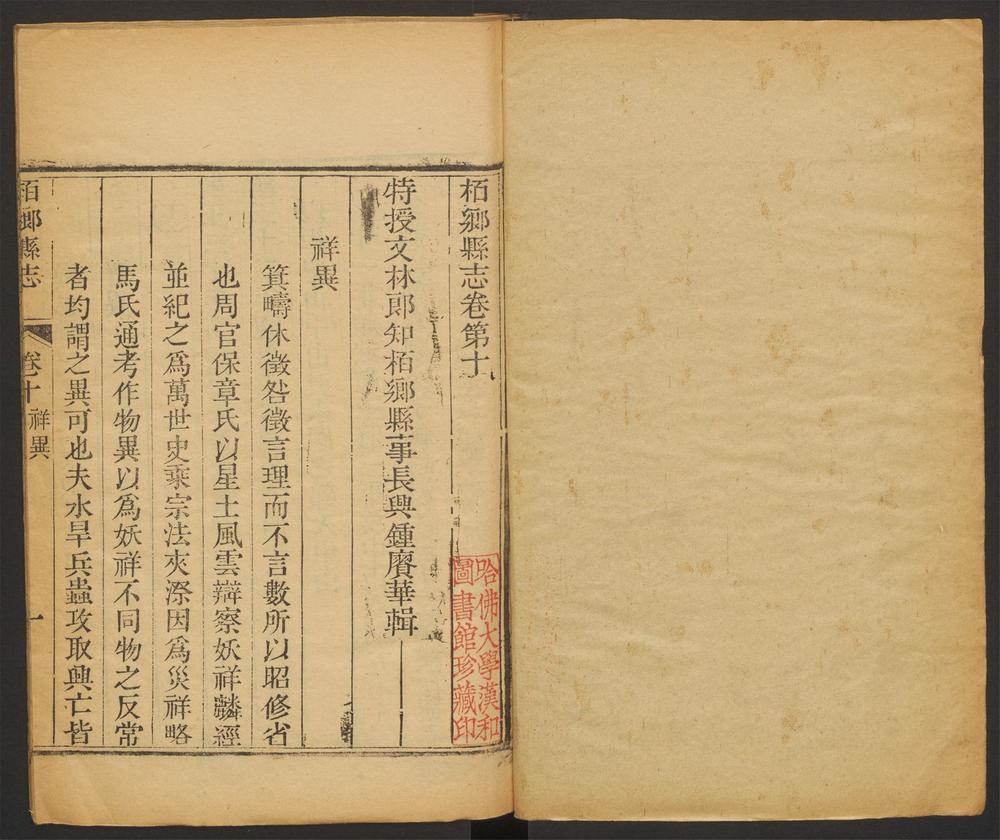 栢鄉縣志卷第十
特授文林郎知栢鄉縣事長興鍾賡華輯
祥異
箕疇休徵咎徵言理而不言數所以昭修省
也周官保章氏以星土風雲辯察妖祥麟經
並紀之爲萬世史乘宗法夾漈因爲災祥略
馬氏通考作物異以爲妖祥不同物之反常
者均謂之異可也夫水旱兵蟲攻取興亡皆
栢鄉縣志
卷十
祥異
一
哈佛大學漢和
圖書館珍藏印